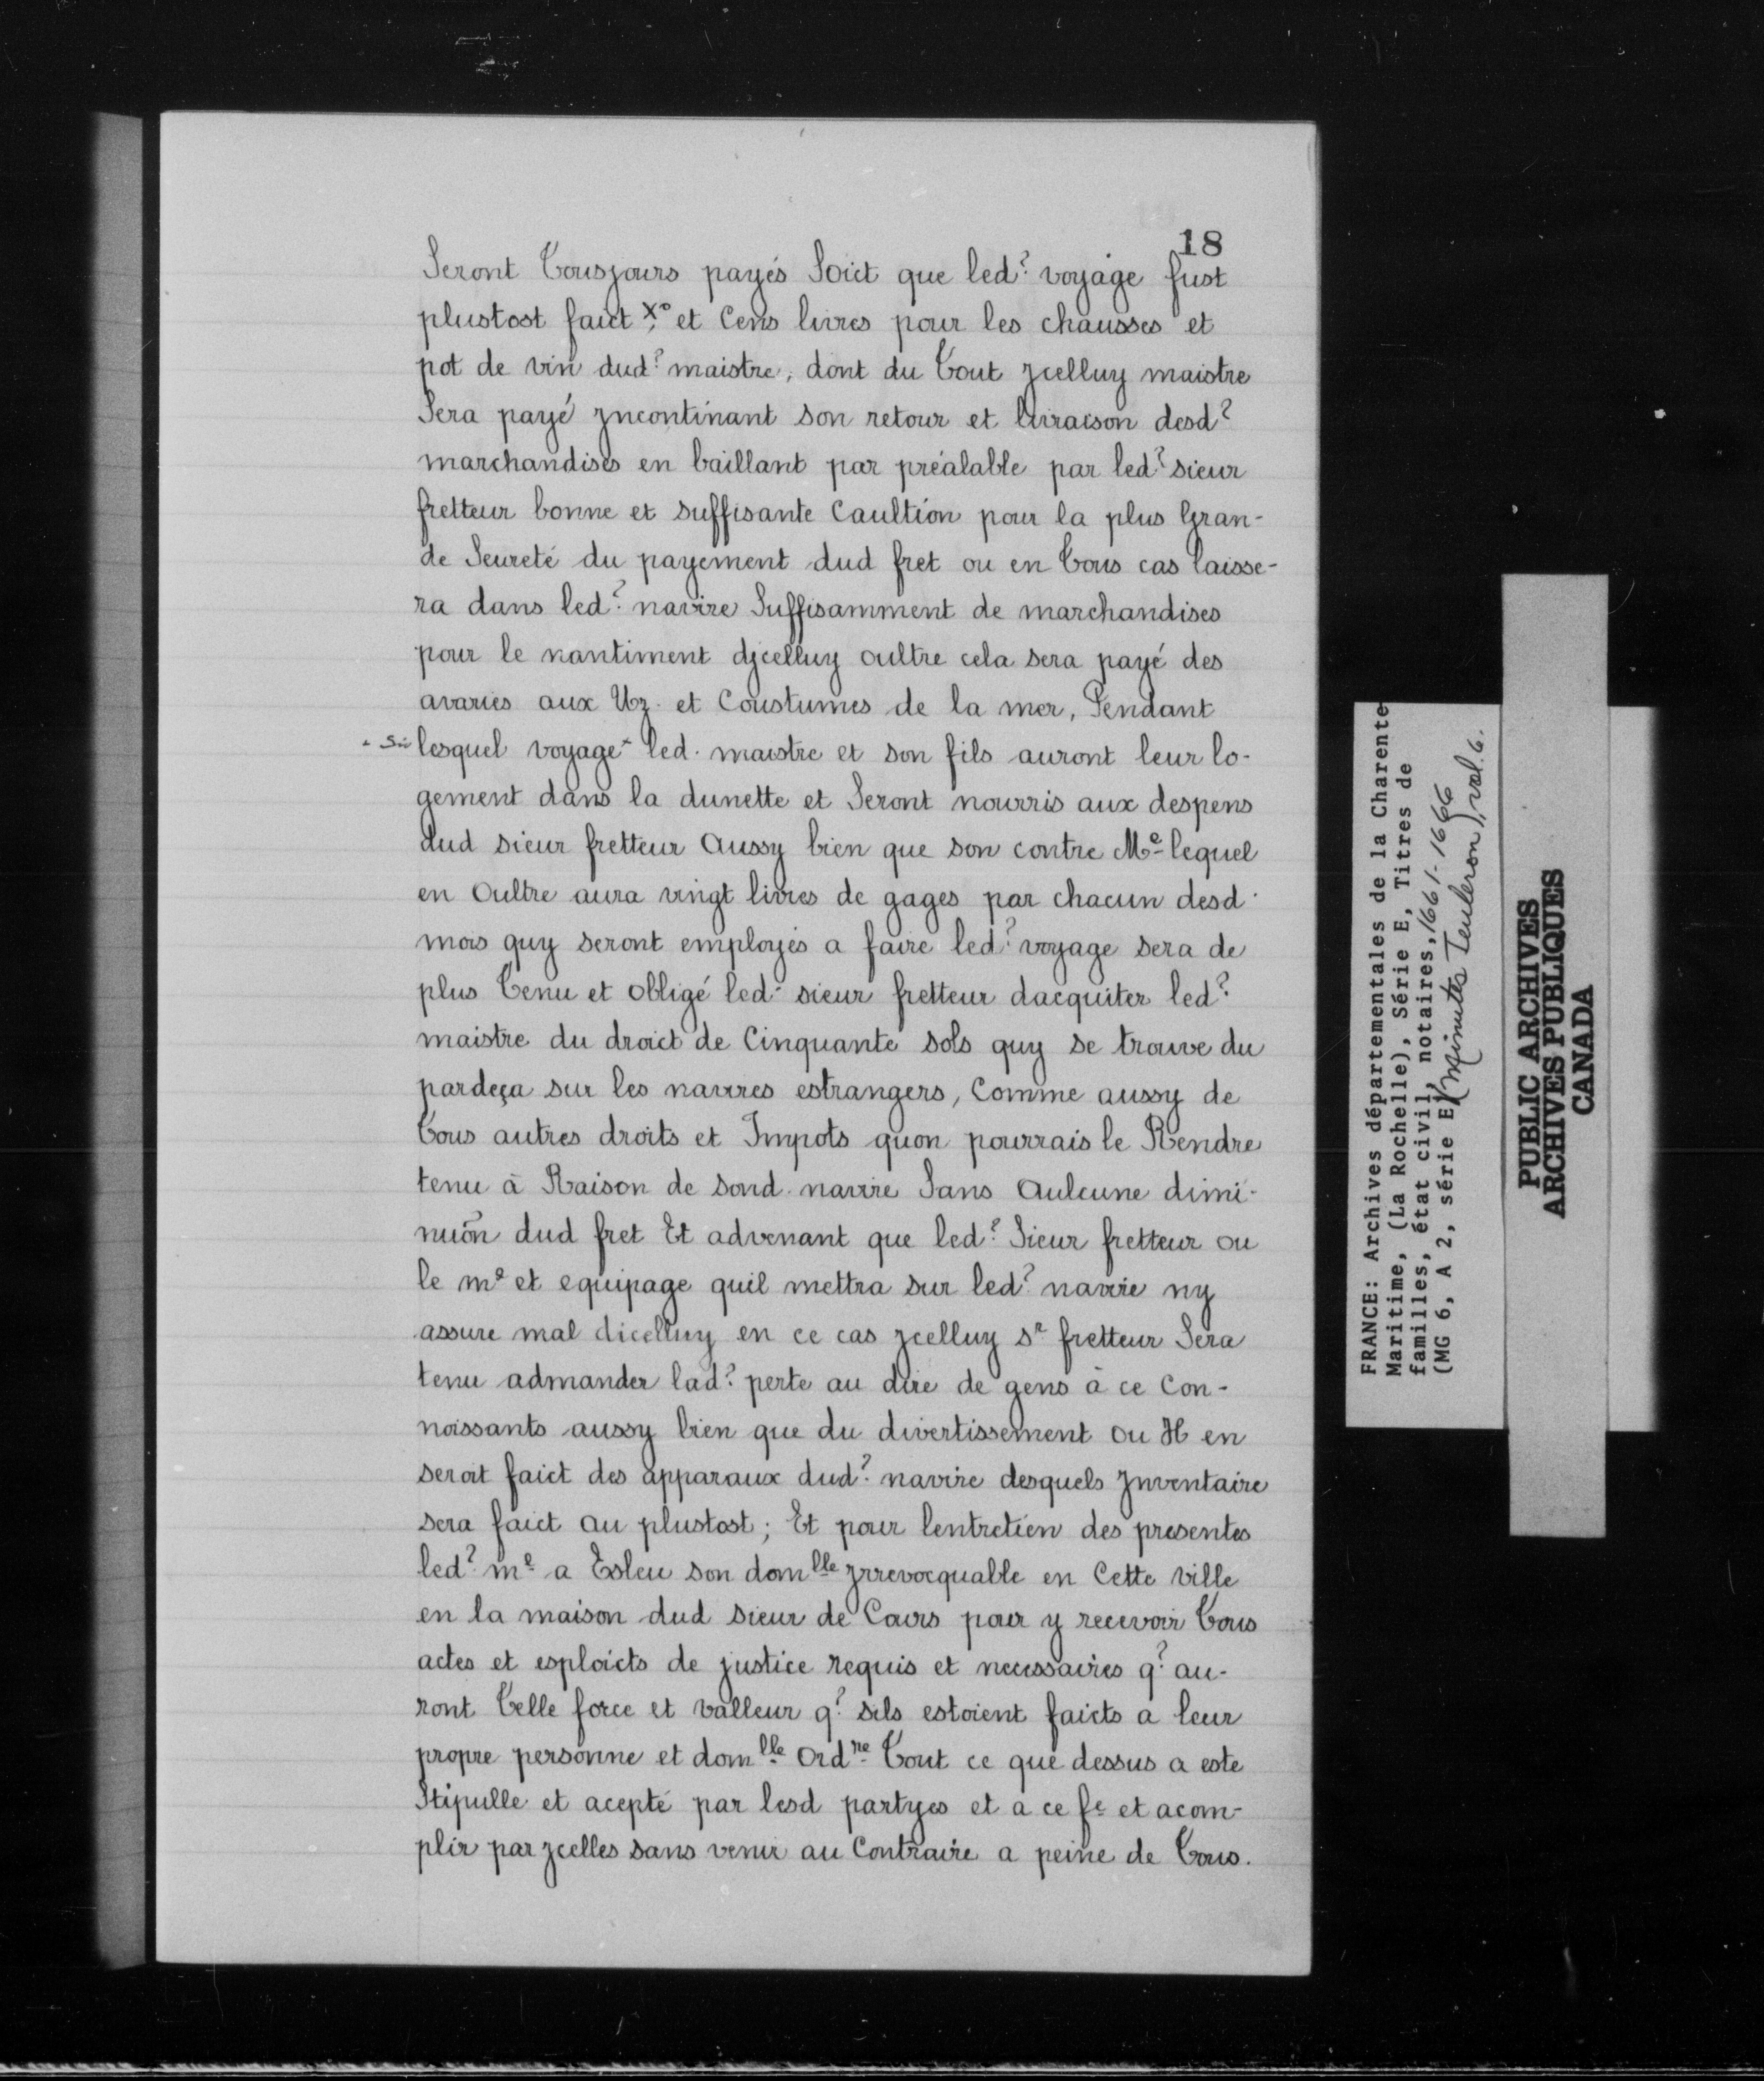 18
Seront Tousjours payés Soict que led? voyage fust
plustost faict Xo; et Cens livres pour les chausses et
pot de vin dud? maistre, dont du Tout ycelluy maistre
Sera payé yncontinant son retour et livraison desd?
marchandises en baillant par préalable par led? sieur
fretteur bonne et suffisante Caultion pour la plus Gran-
de Seureté du payement dud fret ou en Tous cas laisse-
ra dans led? navire Suffisamment de marchandises
pour le nantiment dycelluy oultre cela sera payé des
avaries aux Uz. et Coustumes de la mer, Pendant
lesquel voyage + led. maistre et son fils auront leur lo-
gement dans la dunette et Seront nourris aux despens
dud sieur fretteur Aussy bien que son contre Me lequel
en Oultre aura vingt livres de gages par chacun desd.
mois quy seront employés a faire led? voyage sera de
plus Tenu et Obligé led. sieur fretteur dacquiter led?
maistre du droict de Cinquante sols quy se trouve du
pardeça sur les navires estrangers, Comme aussy de
Tous autres droits et Impots quon pourrais le Rendre
tenu à Raison de sond. navire Sans Aulcune dimi-
nuõn dud fret Et advenant que led? Sieur fretteur ou
le me et equipage quil mettra sur led? navire ny
assure mal dicelluy en ce cas ycelluy sr fretteur Sera
tenu admander lad? perte au dire de gens à ce Con-
noissants aussy bien que du divertissement ou H en
seroit faict des apparaux dud? navire desquels ynventaire
sera faict au plustost; Et pour lentretien des presentes
led? me a Esleu son domlle yrrevocquable en Cette ville
en la maison dud sieur de Cours pour y recevoir Tous
actes et esploicts de justice requis et necessaires q? au-
ront Telle force et valleur q? sils estoient faicts a leur
propre personne et domlle Ordre Tout ce que dessus a este
Stipulle et acepté par lesd partyes et a ce fe et acom-
plir par ycelles sans venir au Contraire a peine de Tous.
FRANCE: Archives départementales de la Charente
Maritime, (La Rochelle), Série E, Titres de
familles, état civil, notaires, 1661-1666
(MG 6, A 2, série E) (Minutes Teuleron), vol. 6.
PUBLIC ARCHIVES
ARCHIVES PUBLIQUES
CANADA